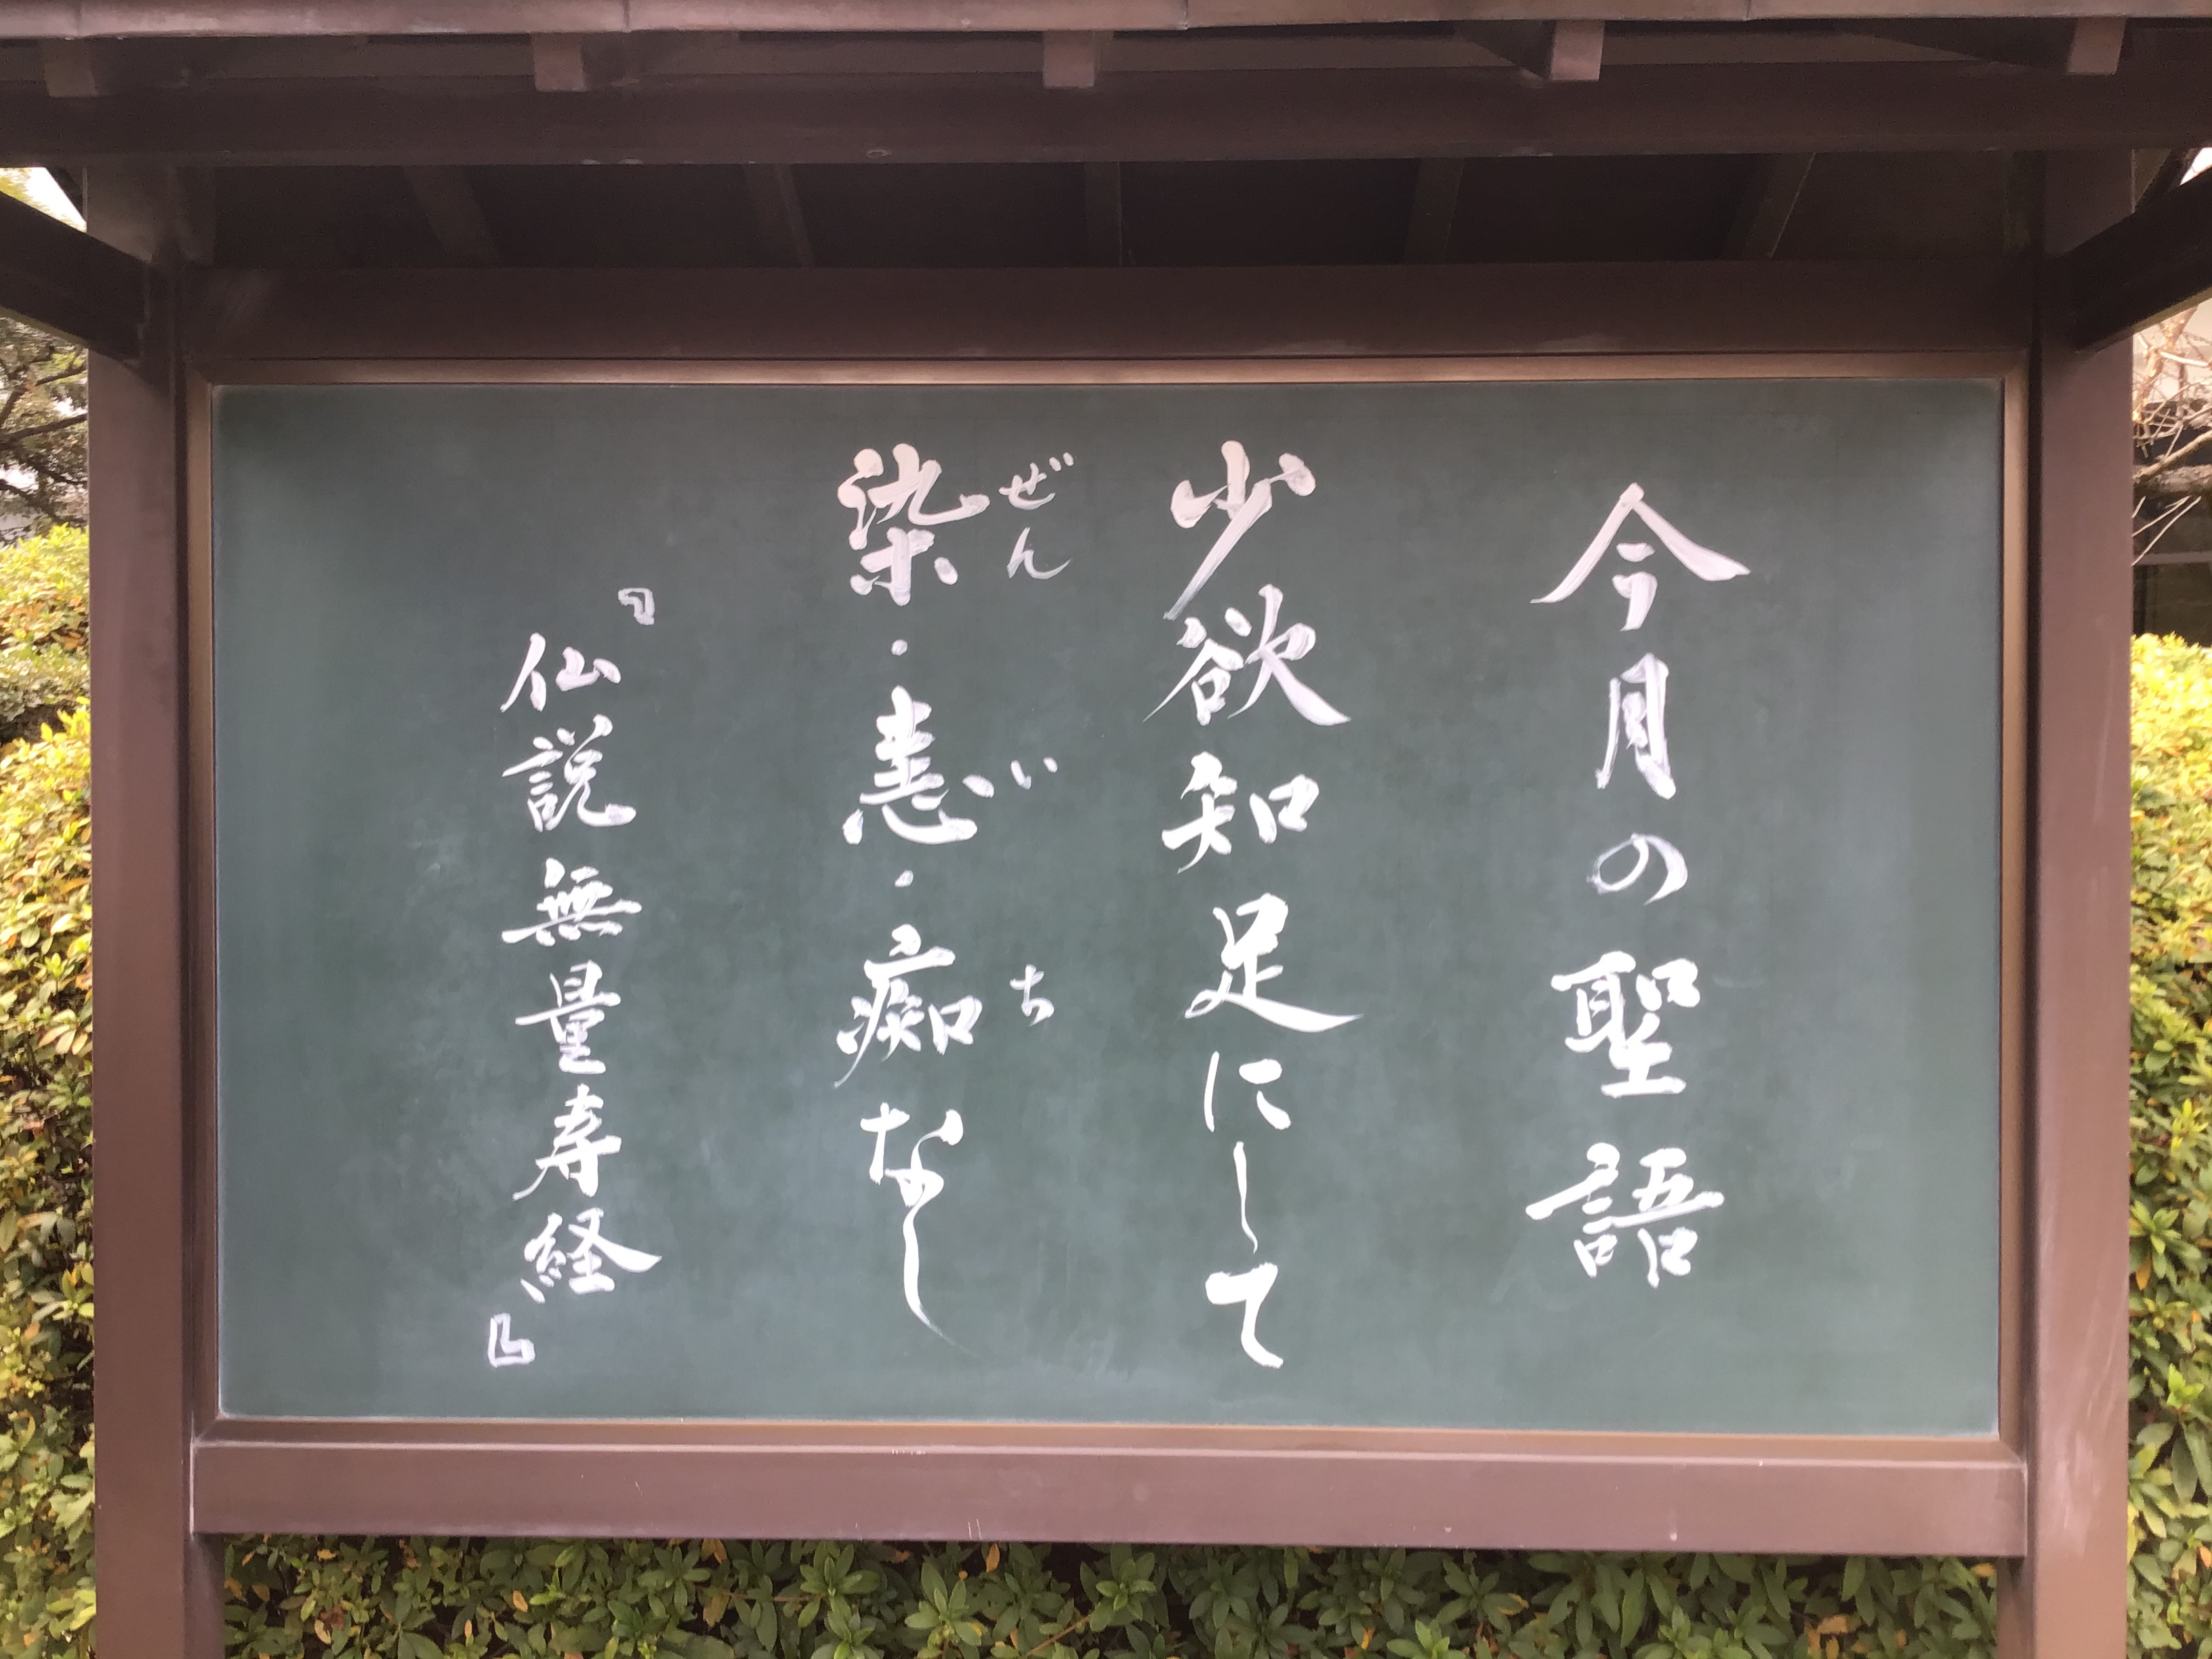 今月の聖語
少欲知足にして
ぜん い ち
染・恚・痴なし
『仏説無量寿経』